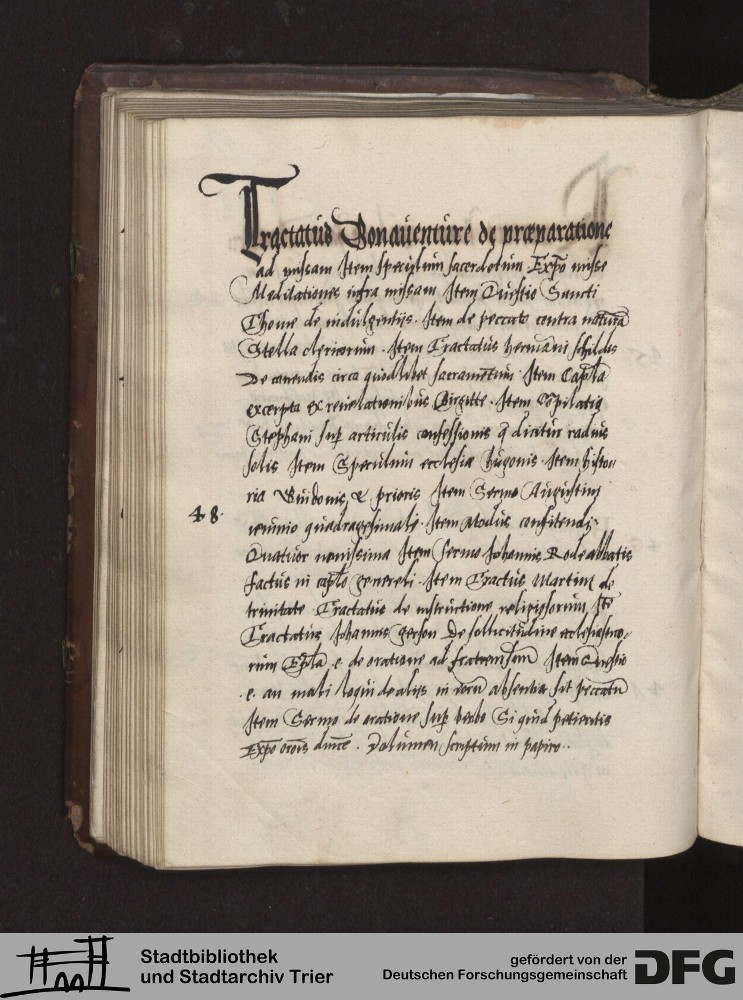 Tractatus Bonauenture de præparatione
ad missam Item speculum sacerdotum Expo misse
Meditationes infra missam Item Questio Sancti
Thome de indulgentijs. Item de peccato contra naturā
Stella clericorum. Item Tractatus hermani schildis
De cauendis circa quodlibet sacramētum Item Capla
excerpta ex reuelationibus Birgitte. Item Cōpilatio
Stephani sup articulis confessionis q dicitur radius
solis Item Speculum ecclesiæ hugonis. Item histo
ria Guidonis & prioris Item Sermo Augustini
48.
ieiunio quadragesimali. Item Modus confitendi.
Quatuor nouissima Item sermo Johannis Rode abbatis
factus in caplo generali. Item Tractus Martini de
trinitate. Tractatus de instructione religiosorum Itē
Tractatus Johannis Gerson De sollicitudine ecclesiastico
rum Epla .e. de oratione ad fratrem suum Item Questio
.e. an mali loqui de alijs in eorum absentia sit peccatū
Item Sermo de oratione sup verbo Si quid petieritis
Expo orōis dnice. Volumen scriptum in papiro..
Stadtbibliothek
und Stadtarchiv Trier
gefördert von der
Deutschen Forschungsgemeinschaft
DFG